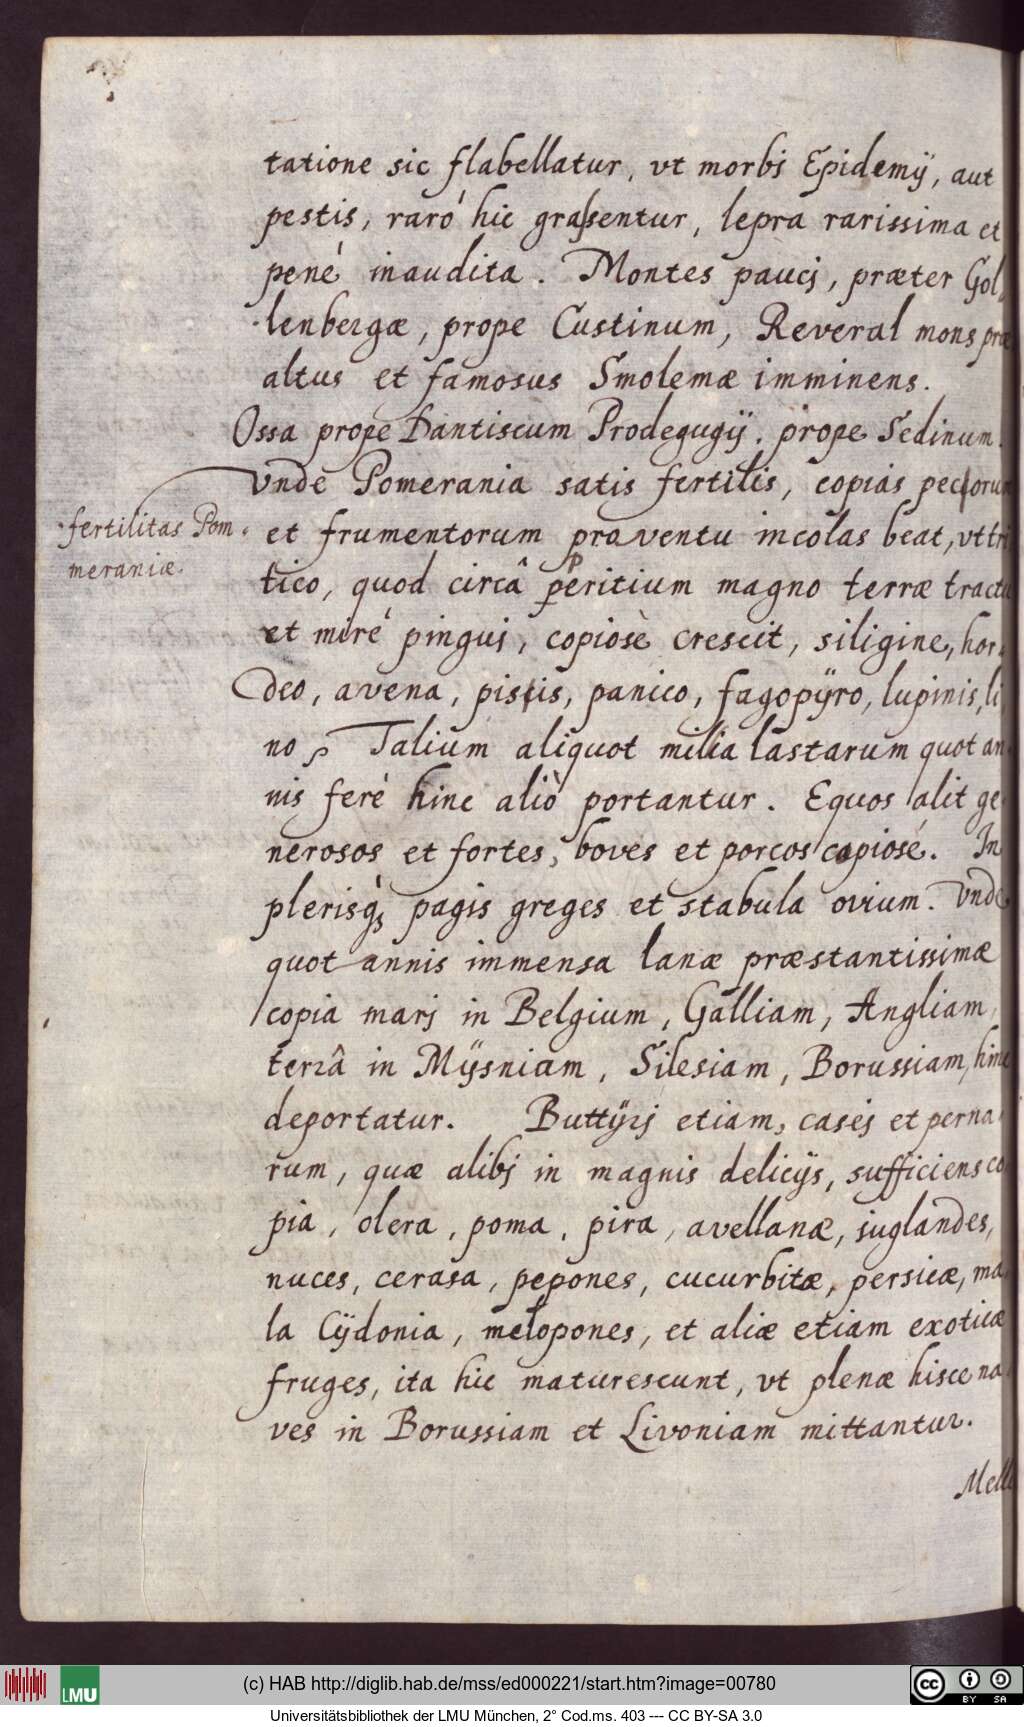 tatione sic flabellatur, vt morbj Epidemij, aut
pestis, raró hic grassentur, lepra rarissima et
pené inaudita. Montes paucj, præter Gol-
lenbergæ, prope Custinum, Reveral mons præ
altus et famosus Smolemæ imminens.
Ossa prope Dantiscum Prodegugij. prope Sedinum.
vnde Pomerania satis fertilis, copiâs pecorum
fertilitas Pom-
meraniæ.
et frumentorum proventu incolas beat, vt tri
tico, quod circâ peritium magno terræ tractu
et miré pingui, copiosè crescit, siligine, hor-
deo, avena, pisis, panico, fagopÿro, lupinis, li
no Talium aliquot milia lastarum quot an-
nis feré hinc aliò portantur. Equos alit ge
nerosos et fortes, boves et porcos copiosé. In
plerisq; pagis greges et stabula ovium. vnde
quot annis immensa lanæ præstantissimæ
copia marj in Belgium, Galliam, Angliam,
terrâ in Mÿsniam, Silesiam, Borussiam, hinc
deportatur. Buttÿrj etiam, casej et perna-
rum, quæ alibj in magnis delicijs, sufficiens co
pia, olera, poma, pira, avellanæ, juglandes,
nuces, cerasa, pepones, cucurbitæ, persicæ, ma
la Cÿdonia, melopones, et aliæ etiam exoticæ
fruges, ita hic maturescunt, vt plenæ hisce na
ves in Borussiam et Livoniam mittantur.
(c) HAB http://diglib.hab.de/mss/ed000221/start.htm?image=00780
LMU
BY SA
Universitätsbibliothek der LMU München, 2° Cod.ms. 403 --- CC BY-SA 3.0